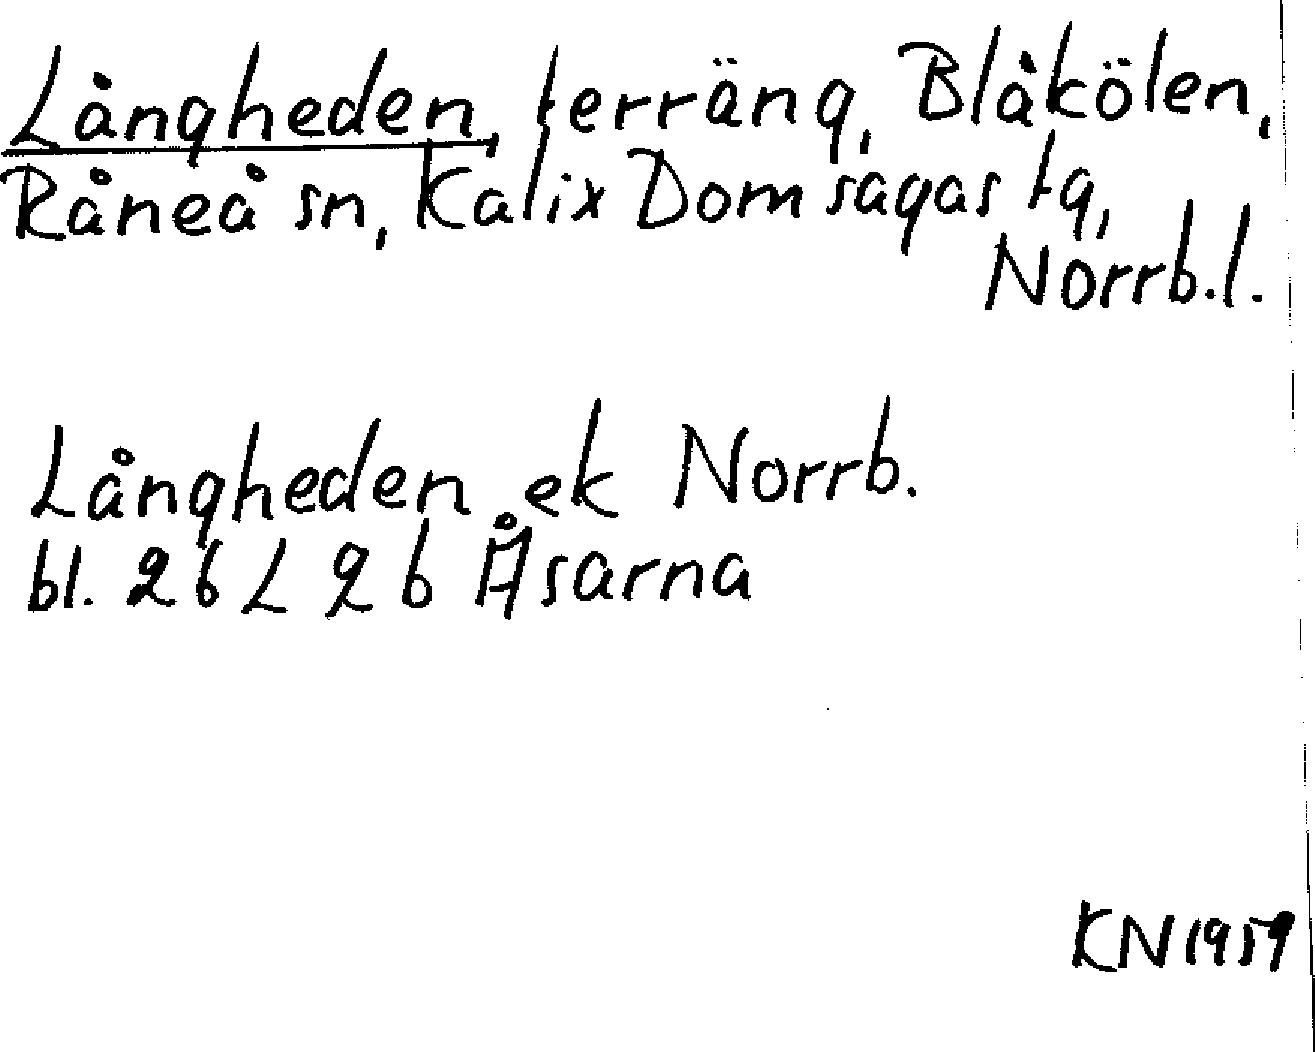 Långheden, terräng, Blåkölen,
Råneå sn, Kalix Domsagas tg,
Norrb.l.
Långheden ek Norrb.
bl. 26 L 2 b Åsarna
KN 1959